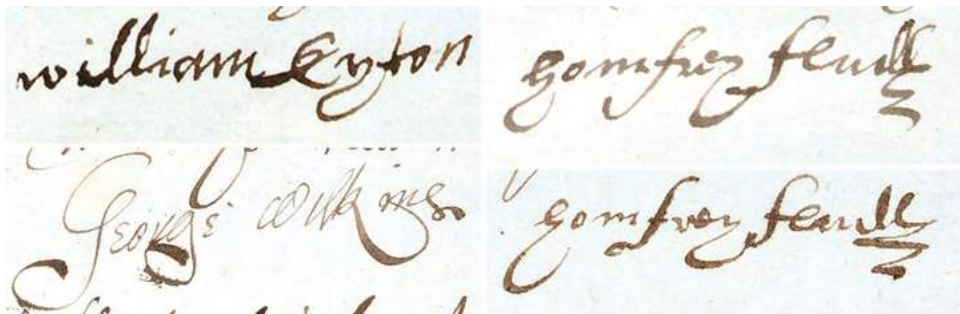 william Eyton
homfrey fludd
George wilkins
homfrey fludd